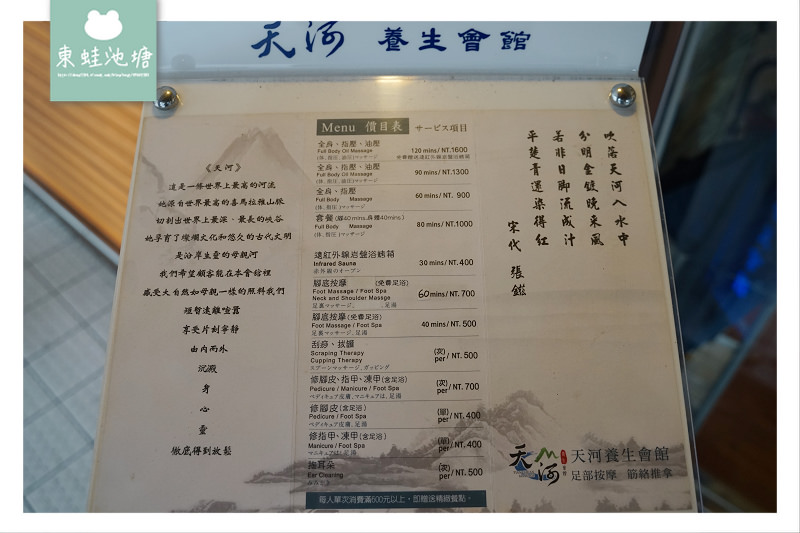 東蛙池塘
天河 養生會館
《天河》
這是一條世界上最高的河流
她源自世界最高的喜馬拉雅山脈
切割出世界上最深、最長的峽谷
她孕育了燦爛文化和悠久的古代文明
是沿岸生靈的母親河
我們希望顧客能在本會館裡
感受大自然如母親一樣的照料我們
短暫遠離喧囂
享受片刻寧靜
由內而外
沉澱
身
心
靈
徹底得到放鬆
Menu 價目表 サービス項目
全身、指壓、油壓
Full Body Oil Massage 120 mins/ NT.1600
(体、指圧、油圧)マッサージ 免費贈送遠紅外線岩盤浴烤箱
全身、指壓、油壓
Full Body Oil Massage 90 mins/ NT.1300
(体、指圧、油圧)マッサージ
全身、指壓
Full Body Massage 60 mins/ NT. 900
(体、指圧)マッサージ
套餐(腳40mins.身體40mins)
Full Body Massage 80 mins/ NT.1000
(体、指圧)マッサージ
遠紅外線岩盤浴烤箱
Infrared Sauna 30 mins/ NT.400
赤外線のオーブン
腳底按摩 (免費足浴)
Foot Massage / Foot Spa
Neck and Shoulder Massge 60mins/ NT.700
足裏マッサージ、 足湯
腳底按摩(免費足浴)
Foot Massage / Foot Spa 40 mins/ NT.500
足裏マッサージ、足湯
刮痧、拔罐
Scraping Therapy (次)
Cupping Therapy per/ NT.500
スプーンマッサージ、カッピング
修腳皮、指甲、凍甲(含足浴) (次)
Pedicure / Manicure / Foot Spa per/ NT.700
ペディキュア皮膚、マニキュアは、足湯
修腳皮(含足浴) (單)
Pedicure / Foot Spa per/ NT.400
ペディキュア皮膚、足湯
修指甲、凍甲(含足浴) (單)
Manicure / Foot Spa per/ NT.400
マニキュアは、足湯
掏耳朵 (次)
Ear Cleaning per/ NT.500
每人單次消費滿600元以上，即贈送精緻餐點。
吹落天河八水中
分明金鏡晚來風
若非日腳流成汁
平楚青還染得紅
宋代 張鎡
天河
天河養生會館
足部按摩 筋絡推拿